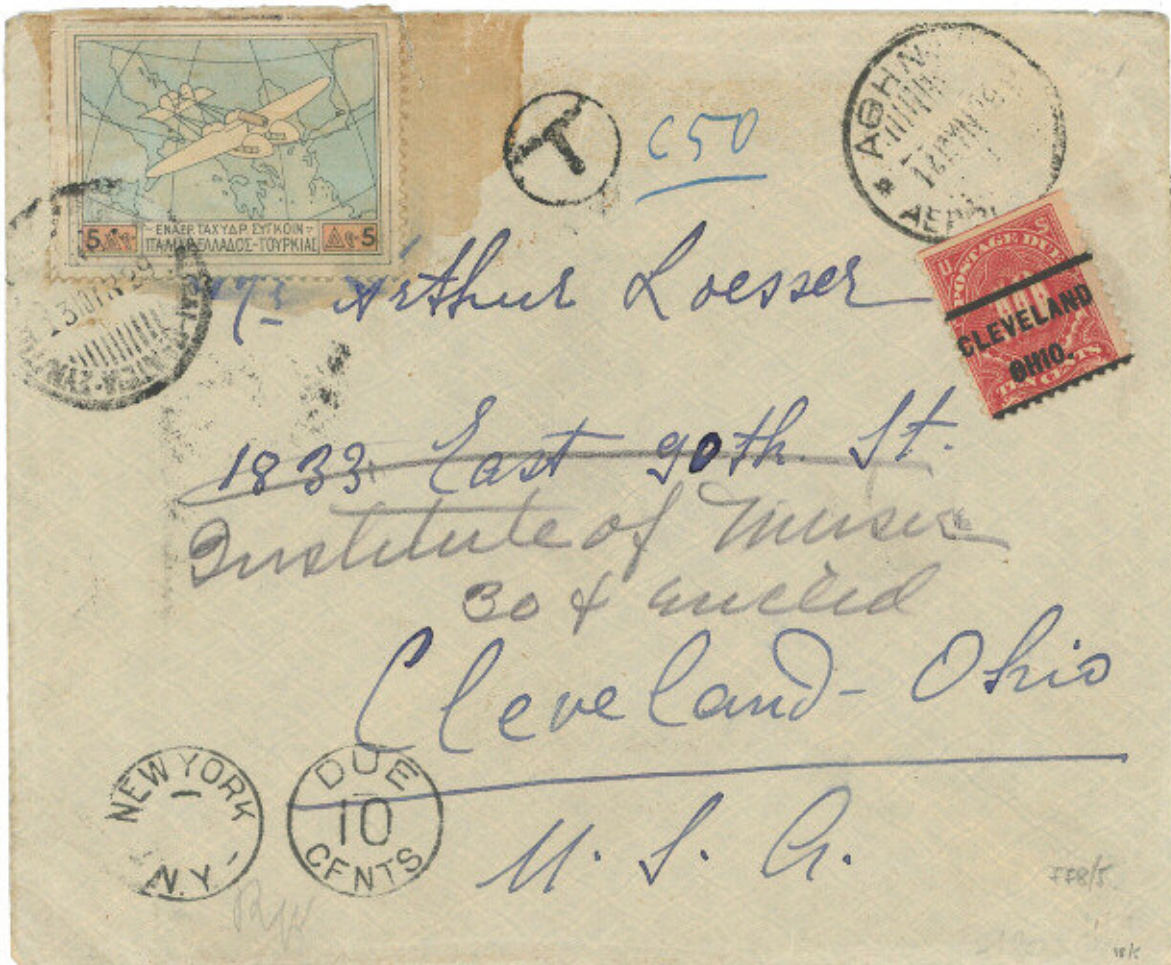 5 Δρ ΕΝΑΕΡ. ΤΑΧΥΔΡ. ΣΥΓΚΟΙΝ. Δρ 5
ΙΤΑΛΙΑΣ-ΕΛΛΑΔΟΣ-ΤΟΥΡΚΙΑΣ
T
C50
ΑΘΗΝ
U S
POSTAGE DUE
CLEVELAND
OHIO.
TEN CENTS
Mr Arthur Loesser
1833 East 90th. St.
Institute of Music
Cleveland - Ohio
U. S. A.
NEW YORK
N.Y.
DUE
10
CENTS
FF8/5